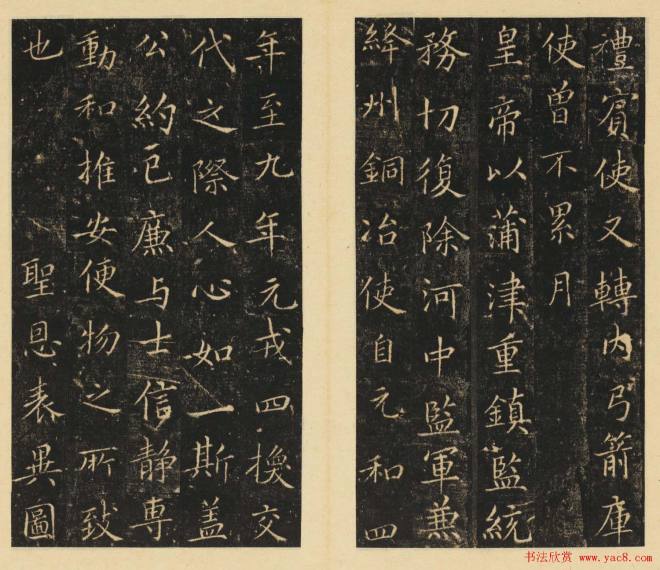 禮賓使又轉內弓箭庫
使曾不累月
皇帝以蒲津重鎮監統
務切復除河中監軍兼
絳州銅冶使自元和四
年至九年元戎四換交
代之際人心如一斯蓋
公約已廉与士信静專
動和推安便物之所致
也 聖恩表異圖
书法欣赏 www.yac8.com